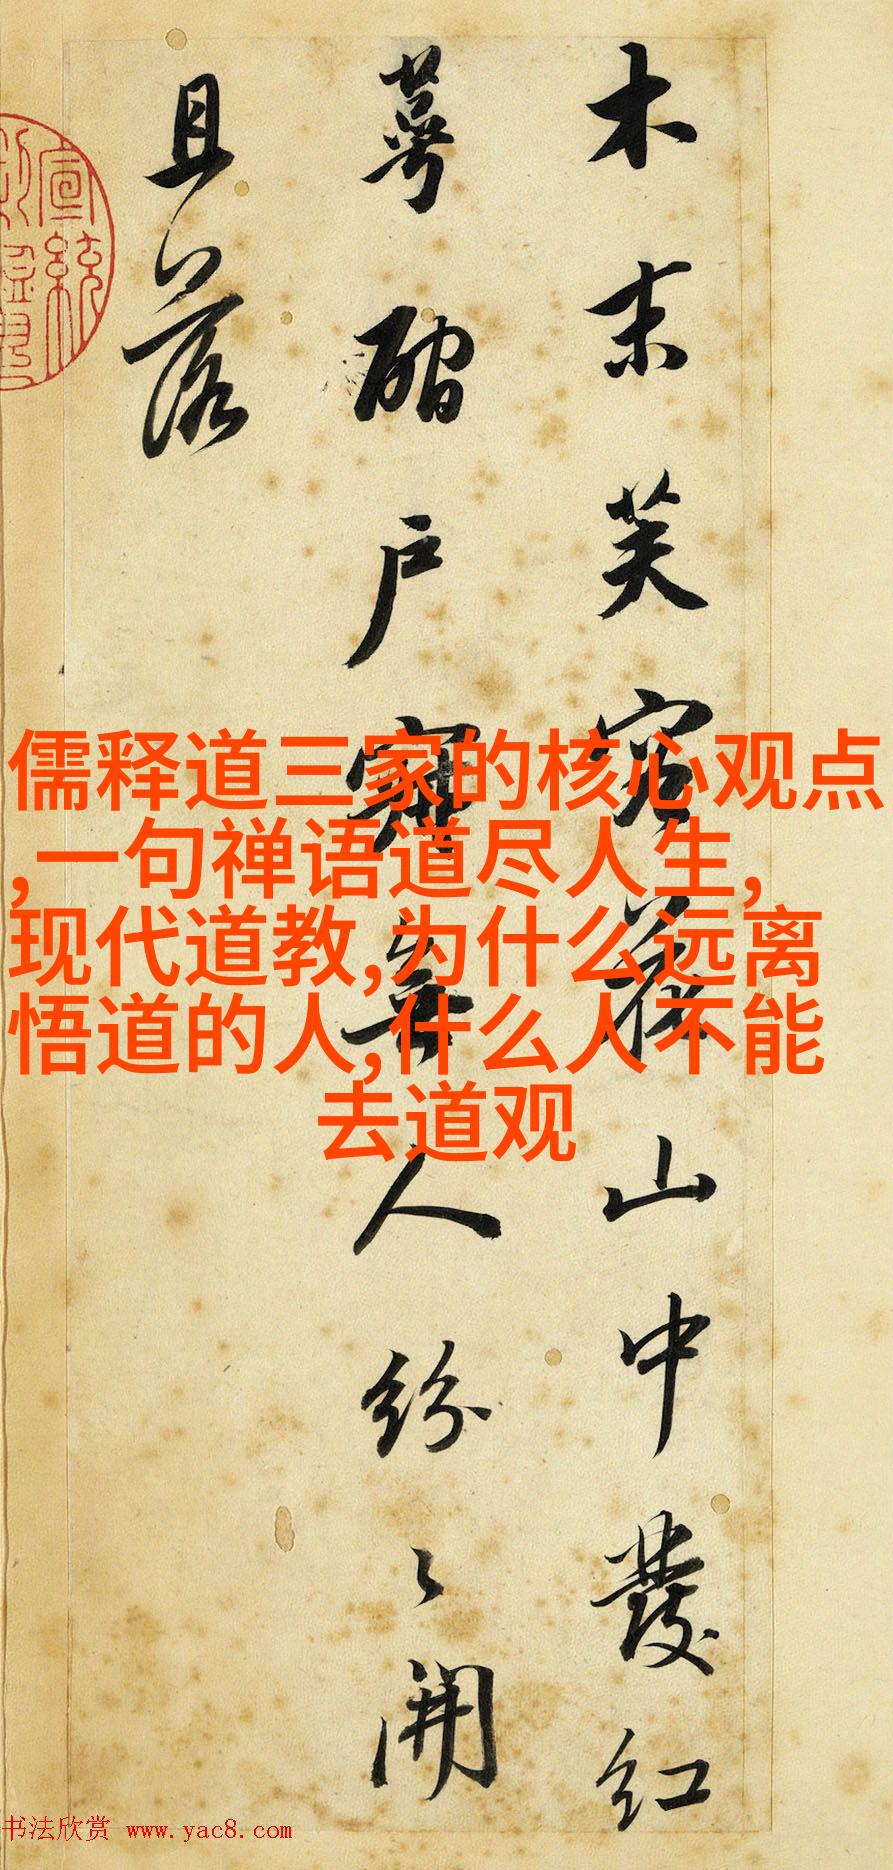 木末芙容花山中發紅
萼磵戶寂無人紛〻開
且落
宣統
儒释道三家的核心观点
,一句禅语道尽人生,
现代道教,为什么远离
悟道的人,什么人不能
去道观
书法欣赏 www.yac8.com